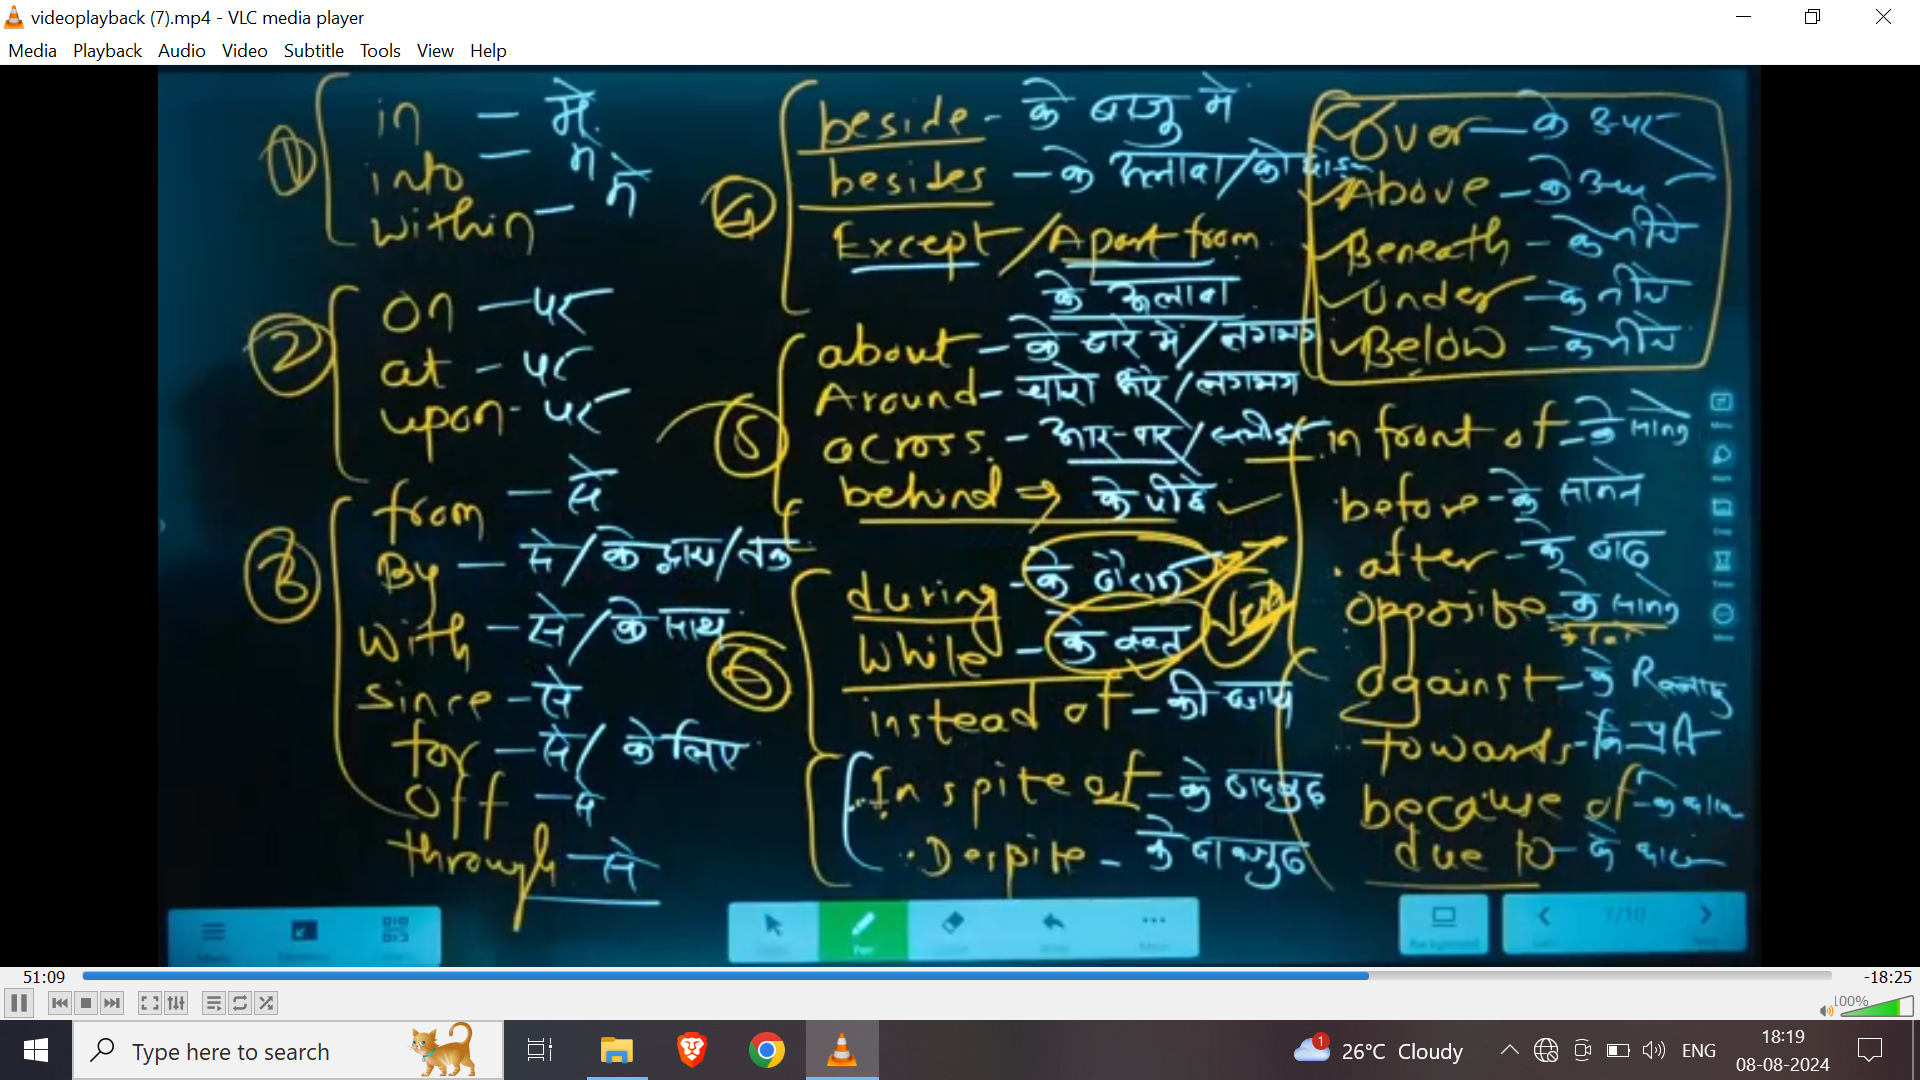 videoplayback (7).mp4 - VLC media player
Media Playback Audio Video Subtitle Tools View Help
① in – में
into – में
within – में
② on – पर
at – पर
upon - पर
③ from – से
By – से/के द्वारा/तक
with – से/के साथ
since – से
for – से/ के लिए
off – से
through – से
④ beside - के बाजु में
besides – के अलावा/को छोड़
Except / Apart from
के अलावा
⑤ about – के बारे में/लगभग
Around – चारो ओर/लगभग
across. – आर-पार/
behind ⇒ के पीछे
⑥ during – के दौरान
While – के वक्त
instead of – की बजाय
In spite of – के बावजुद
Despite – के बावजुद
Over – के ऊपर
Above – के ऊपर
Beneath – के नीचे
Under – के नीचे
Below – के नीचे
in front of – के सामने
before – के सामने
after – के बाद
opposite – के सामने
against – के खिलाफ
towards – की प्रति
because of – के कारण
due to – के कारण
7/10
51:09
-18:25
100%
Type here to search
1
26°C Cloudy
ENG
18:19
08-08-2024